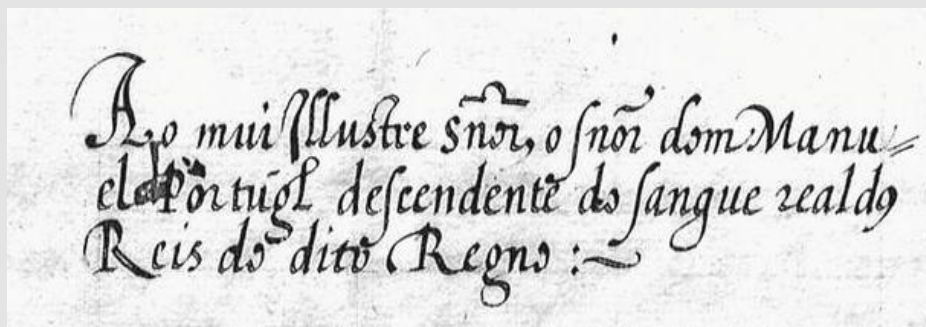 Ao mui Illustre Sñor, o sñor dom Manu=
el de Portugl descendente do sangue real dos
Reis do dito Regno :~